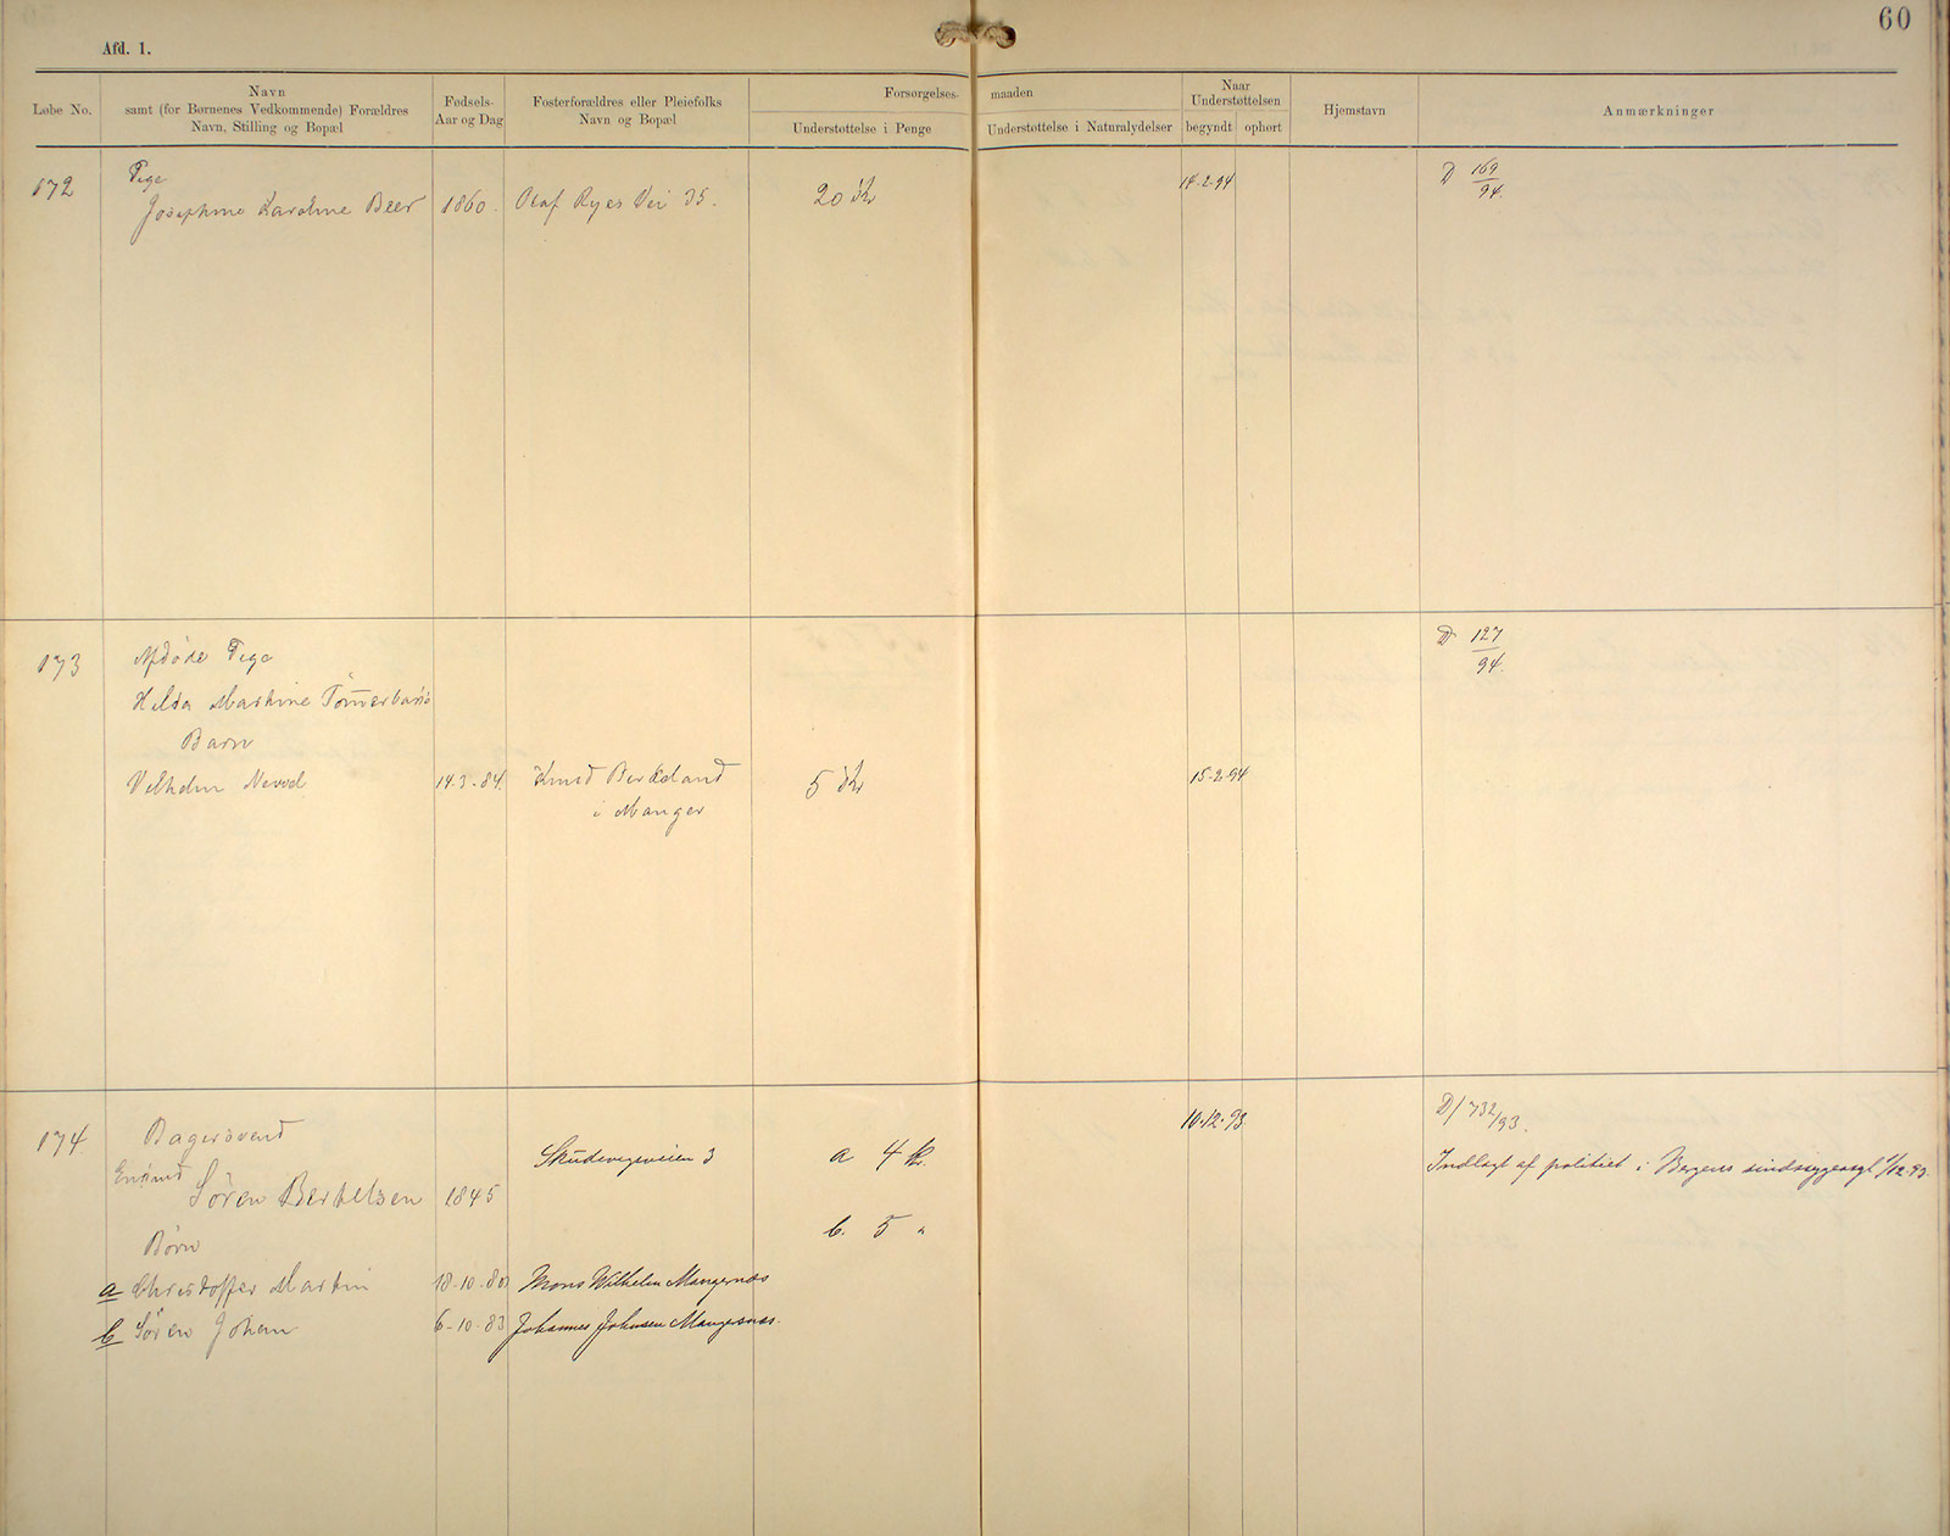 60
Afd. 1.
Løbe No.
Navn
samt (for Børnenes Vedkommende) Forældres
Navn, Stilling og Bopæl
Fødsels-
Aar og Dag
Fosterforældres eller Pleiefolks
Navn og Bopæl
Forsørgelses-
maaden
Understøttelse i Penge
Understøttelse i Naturalydelser
Naar
Understøttelsen
begyndt
ophørt
Hjemstavn
Anmærkninger
172
Pige
Josephine Karoline Beer
1860.
Olaf Ryes Vei 35.
20 Kr
14-2-94
D 169
94.
173
Afdøde Pige
Hilda Martine
Barn
Vilhelm
14-3-84.
Knud Birkeland
i Manger
5 Kr
15-2-94
D 127
94.
174
Bagersvend
Enkemd
Sören Bertelsen
1845
Skudevigsveien 3
a 4 kr.
b. 5 "
10-12-93.
D/732/93.
Indlagt af politiet i Bergens sindssygeasyl /12-93.
Börn
a Christoffer Martin
18-10-80
Mons Wilhelm Mangernæs
b Sören Johan
6-10-83
Johannes Johnsen Mangersnæs.